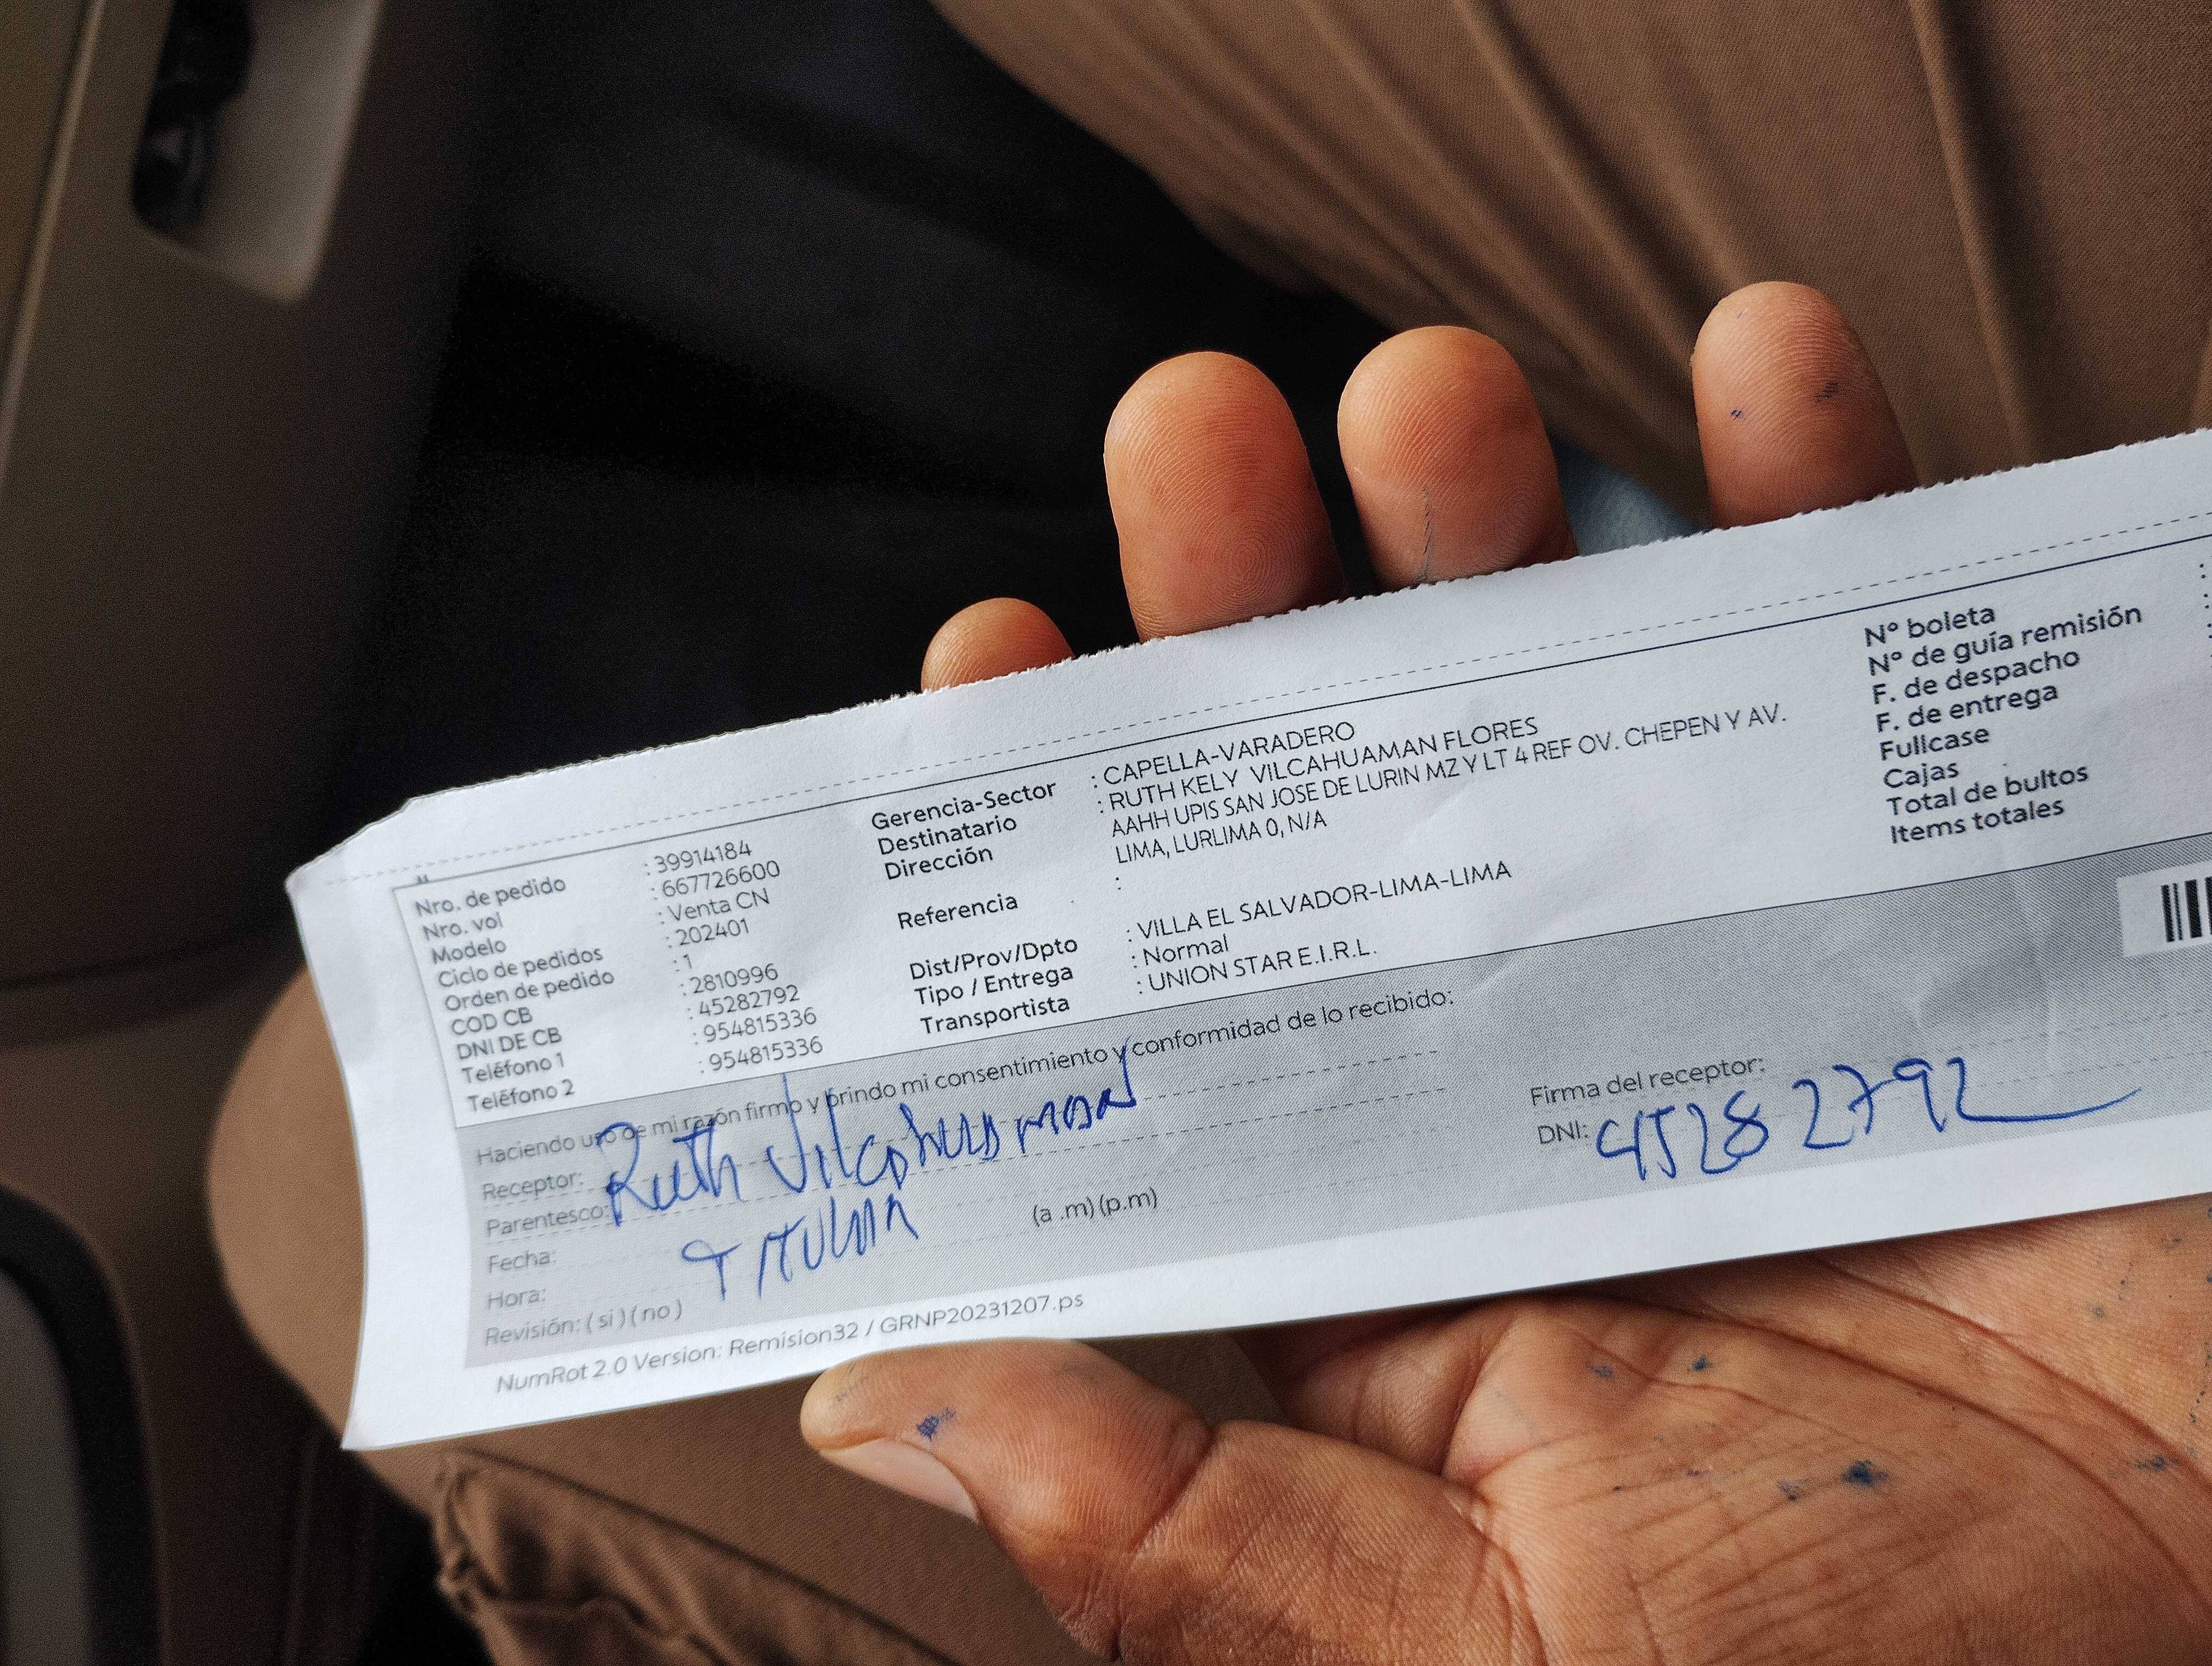 Nro. de pedido : 39914184
Nro. vol : 667726600
Modelo : Venta CN
Ciclo de pedidos : 202401
Orden de pedido : 1
COD CB : 2810996
DNI DE CB : 45282792
Teléfono 1 : 954815336
Teléfono 2 : 954815336
Gerencia-Sector : CAPELLA-VARADERO
Destinatario : RUTH KELY VILCAHUAMAN FLORES
Dirección AAHH UPIS SAN JOSE DE LURIN MZ Y LT 4 REF OV. CHEPEN Y AV.
LIMA, LURLIMA 0, N/A
Referencia :
Dist/Prov/Dpto : VILLA EL SALVADOR-LIMA-LIMA
Tipo / Entrega : Normal
Transportista : UNION STAR E.I.R.L.
N° boleta :
N° de guía remisión :
F. de despacho :
F. de entrega
Fullcase
Cajas
Total de bultos
Items totales
Haciendo uso de mi razón firmo y brindo mi consentimiento y conformidad de lo recibido:
Receptor: Ruth Vilcahuaman
Parentesco: TITULAR
Fecha:
Hora: (a .m) (p.m)
Revisión: ( si ) ( no )
Firma del receptor:
DNI: 45282792
NumRot 2.0 Version: Remision32 / GRNP20231207.ps